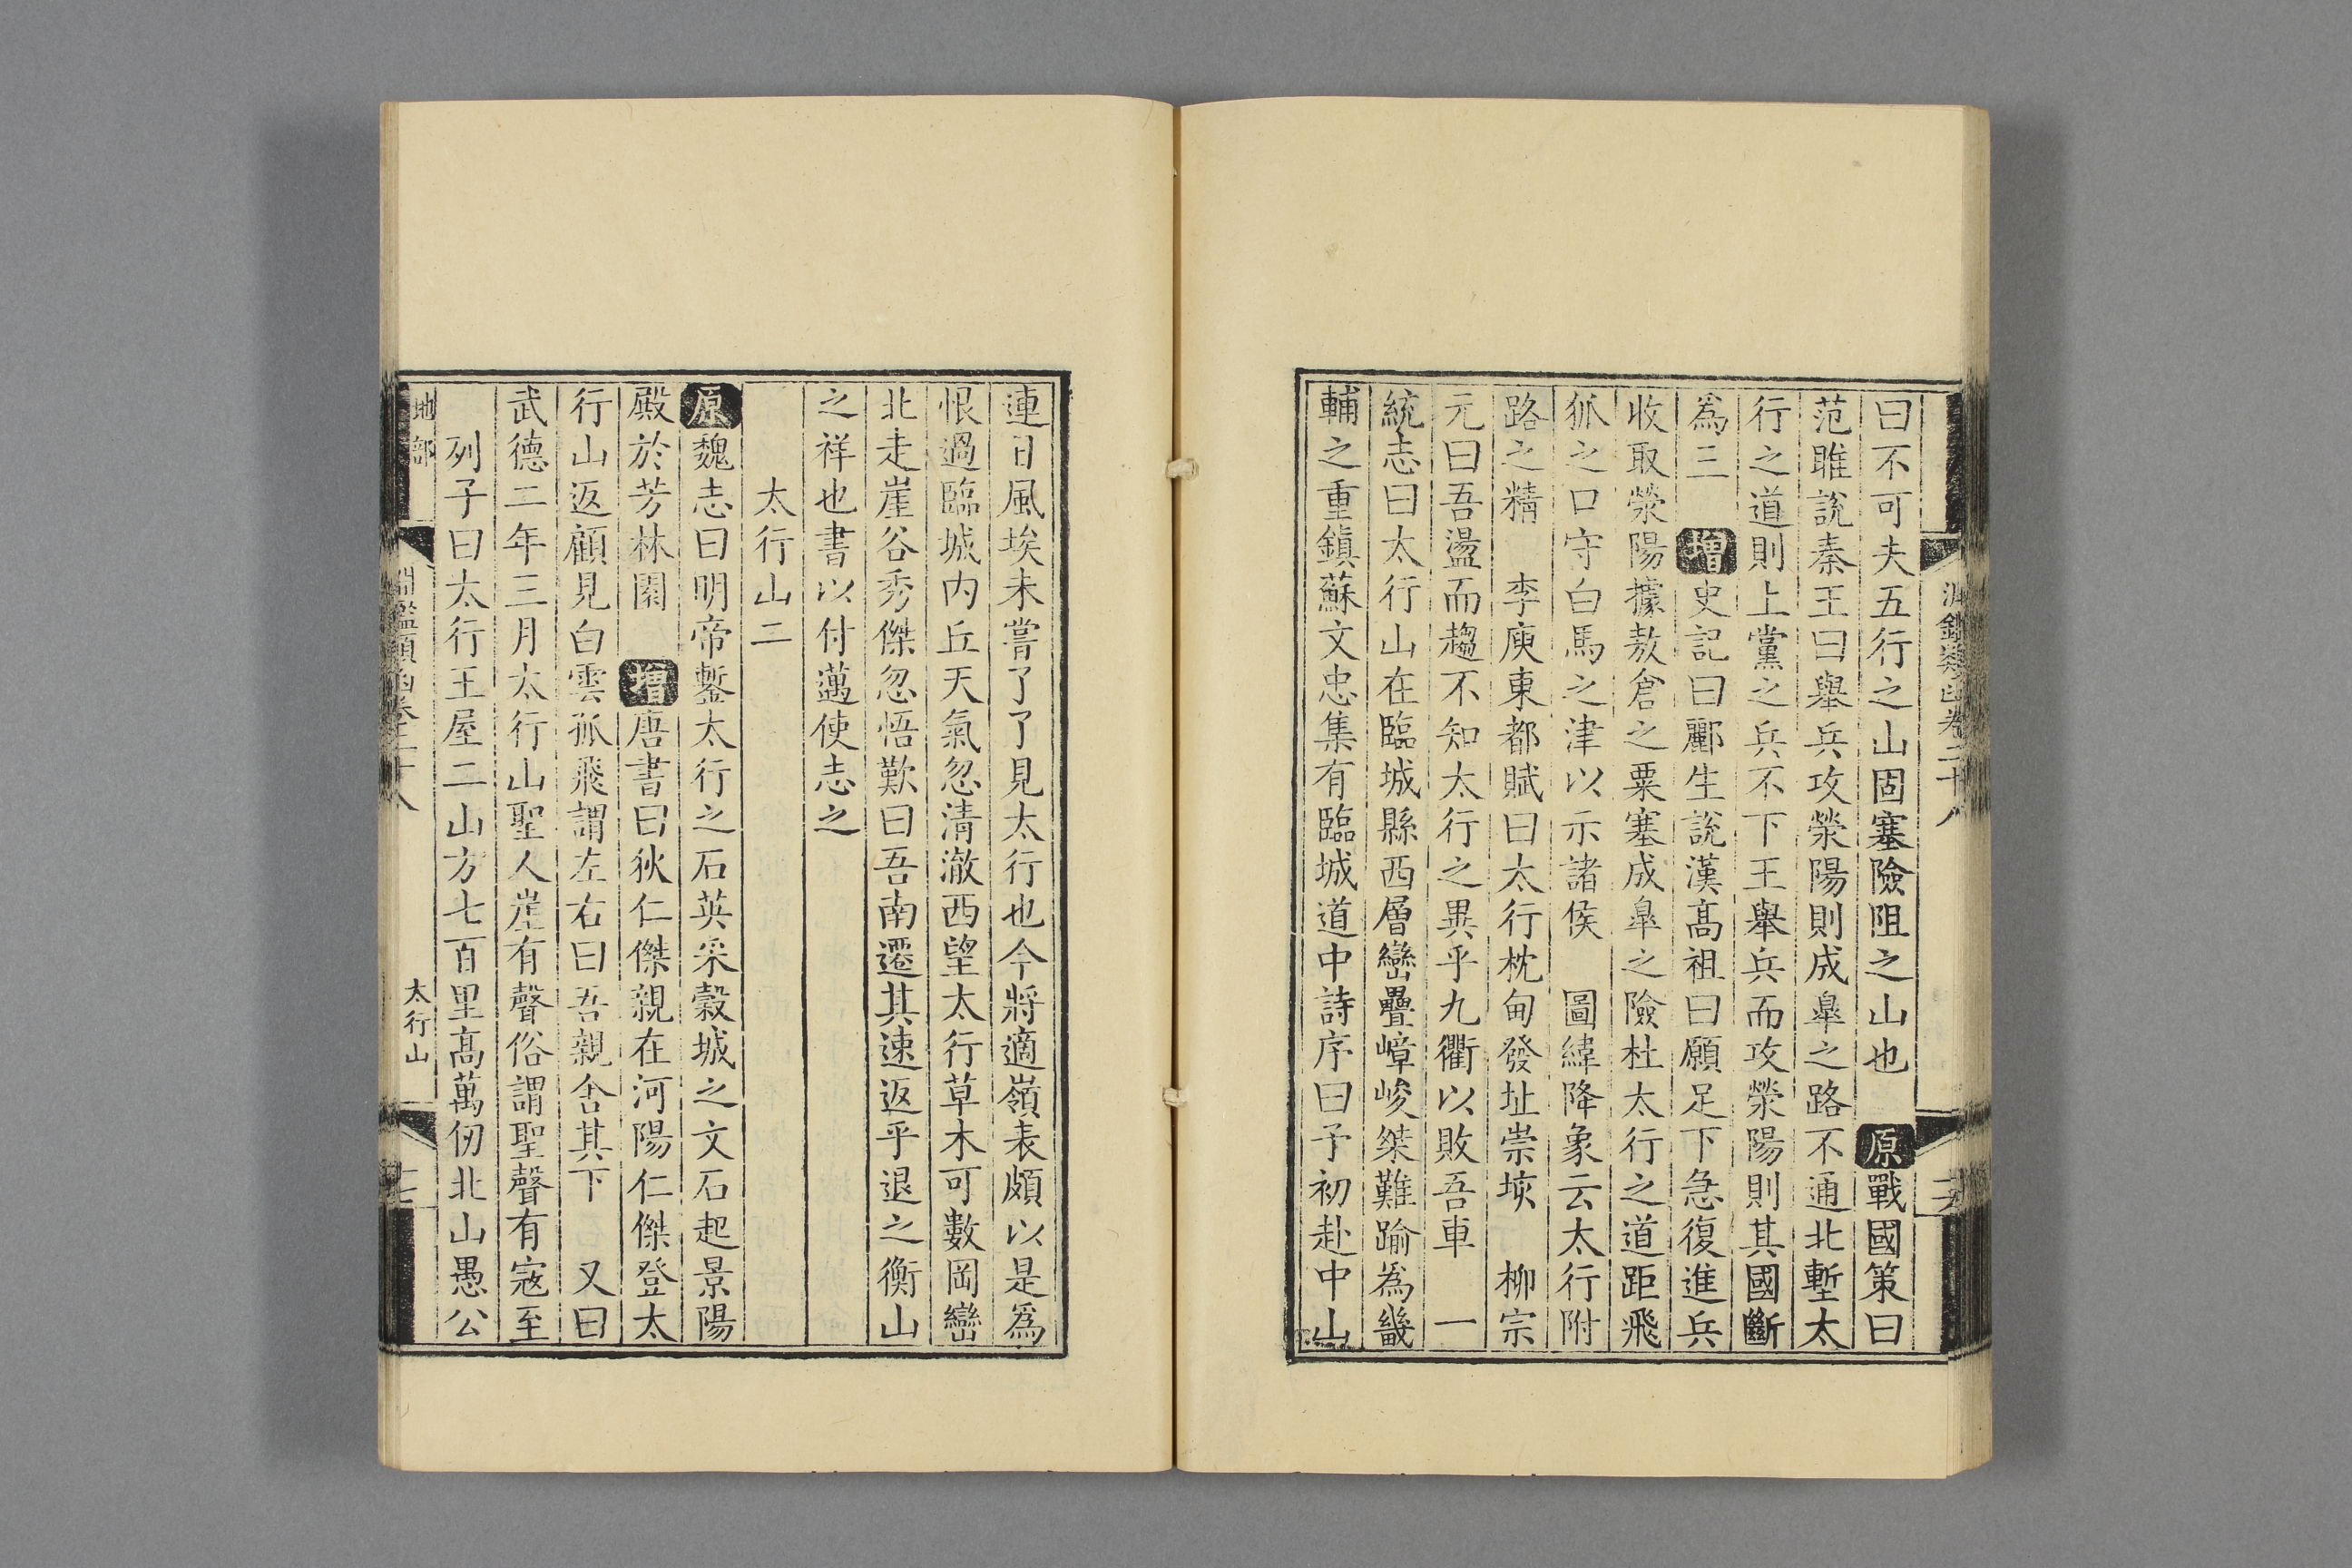 淵鑑類函卷二十八
曰不可夫五行之山固塞險阻之山也　原戰國策曰
范雎說秦王曰舉兵攻滎陽則成臯之路不通北塹太
行之道則上黨之兵不下王舉兵而攻滎陽則其國斷
爲三　增史記曰酈生說漢高祖曰願足下急復進兵
收取滎陽據敖倉之粟塞成臯之險杜太行之道距飛
狐之口守白馬之津以示諸侯　圖緯降象云太行附
路之精　李庾東都賦曰太行枕甸發址崇垓　柳宗
元曰吾盪而趨不知太行之異乎九衢以敗吾車　一
統志曰太行山在臨城縣西層巒疊嶂峻桀難踰爲畿
輔之重鎮蘇文忠集有臨城道中詩序曰予初赴中山
連日風埃未嘗了了見太行也今將適嶺表頗以是爲
恨過臨城内丘天氣忽清澈西望太行草木可數岡巒
北走崖谷秀傑忽悟歎曰吾南遷其速返乎退之衡山
之祥也書以付邁使志之
太行山二
原魏志曰明帝鑿太行之石英采穀城之文石起景陽
殿於芳林園　增唐書曰狄仁傑親在河陽仁傑登太
行山返顧見白雲孤飛謂左右曰吾親舍其下　又曰
武德二年三月太行山聖人崖有聲俗謂聖聲有寇至
列子曰太行王屋二山方七百里高萬仞北山愚公
地部
淵鑑類函卷二十八
太行山